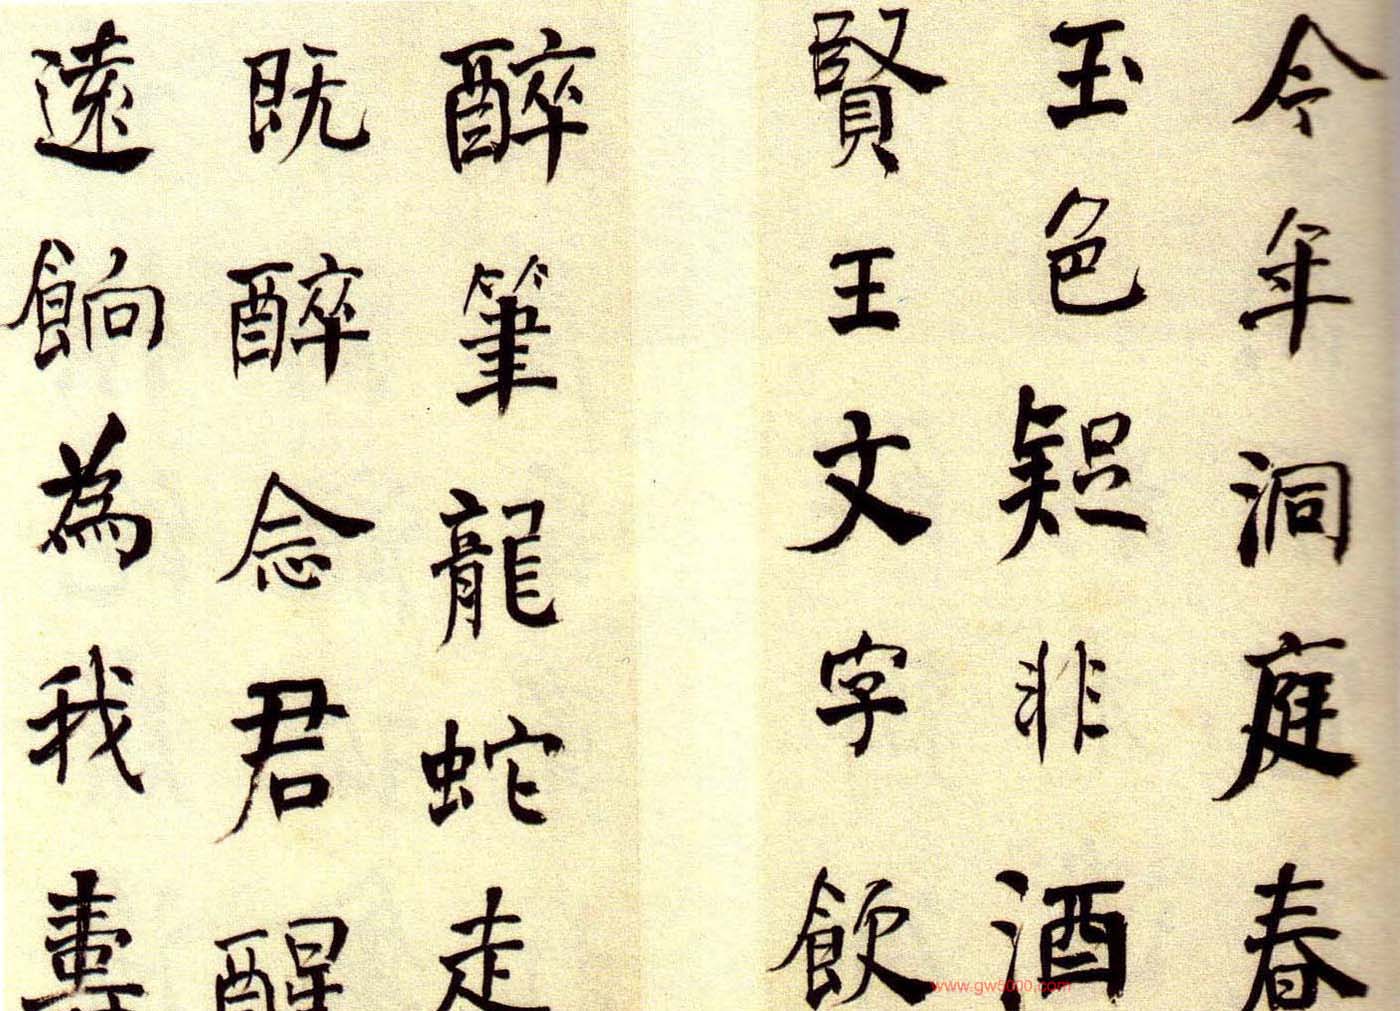 今年洞庭春
玉色疑非酒
賢王文字飲
醉筆龍蛇走
既醉念君醒
遠餉為我壽
www.gw5000.com